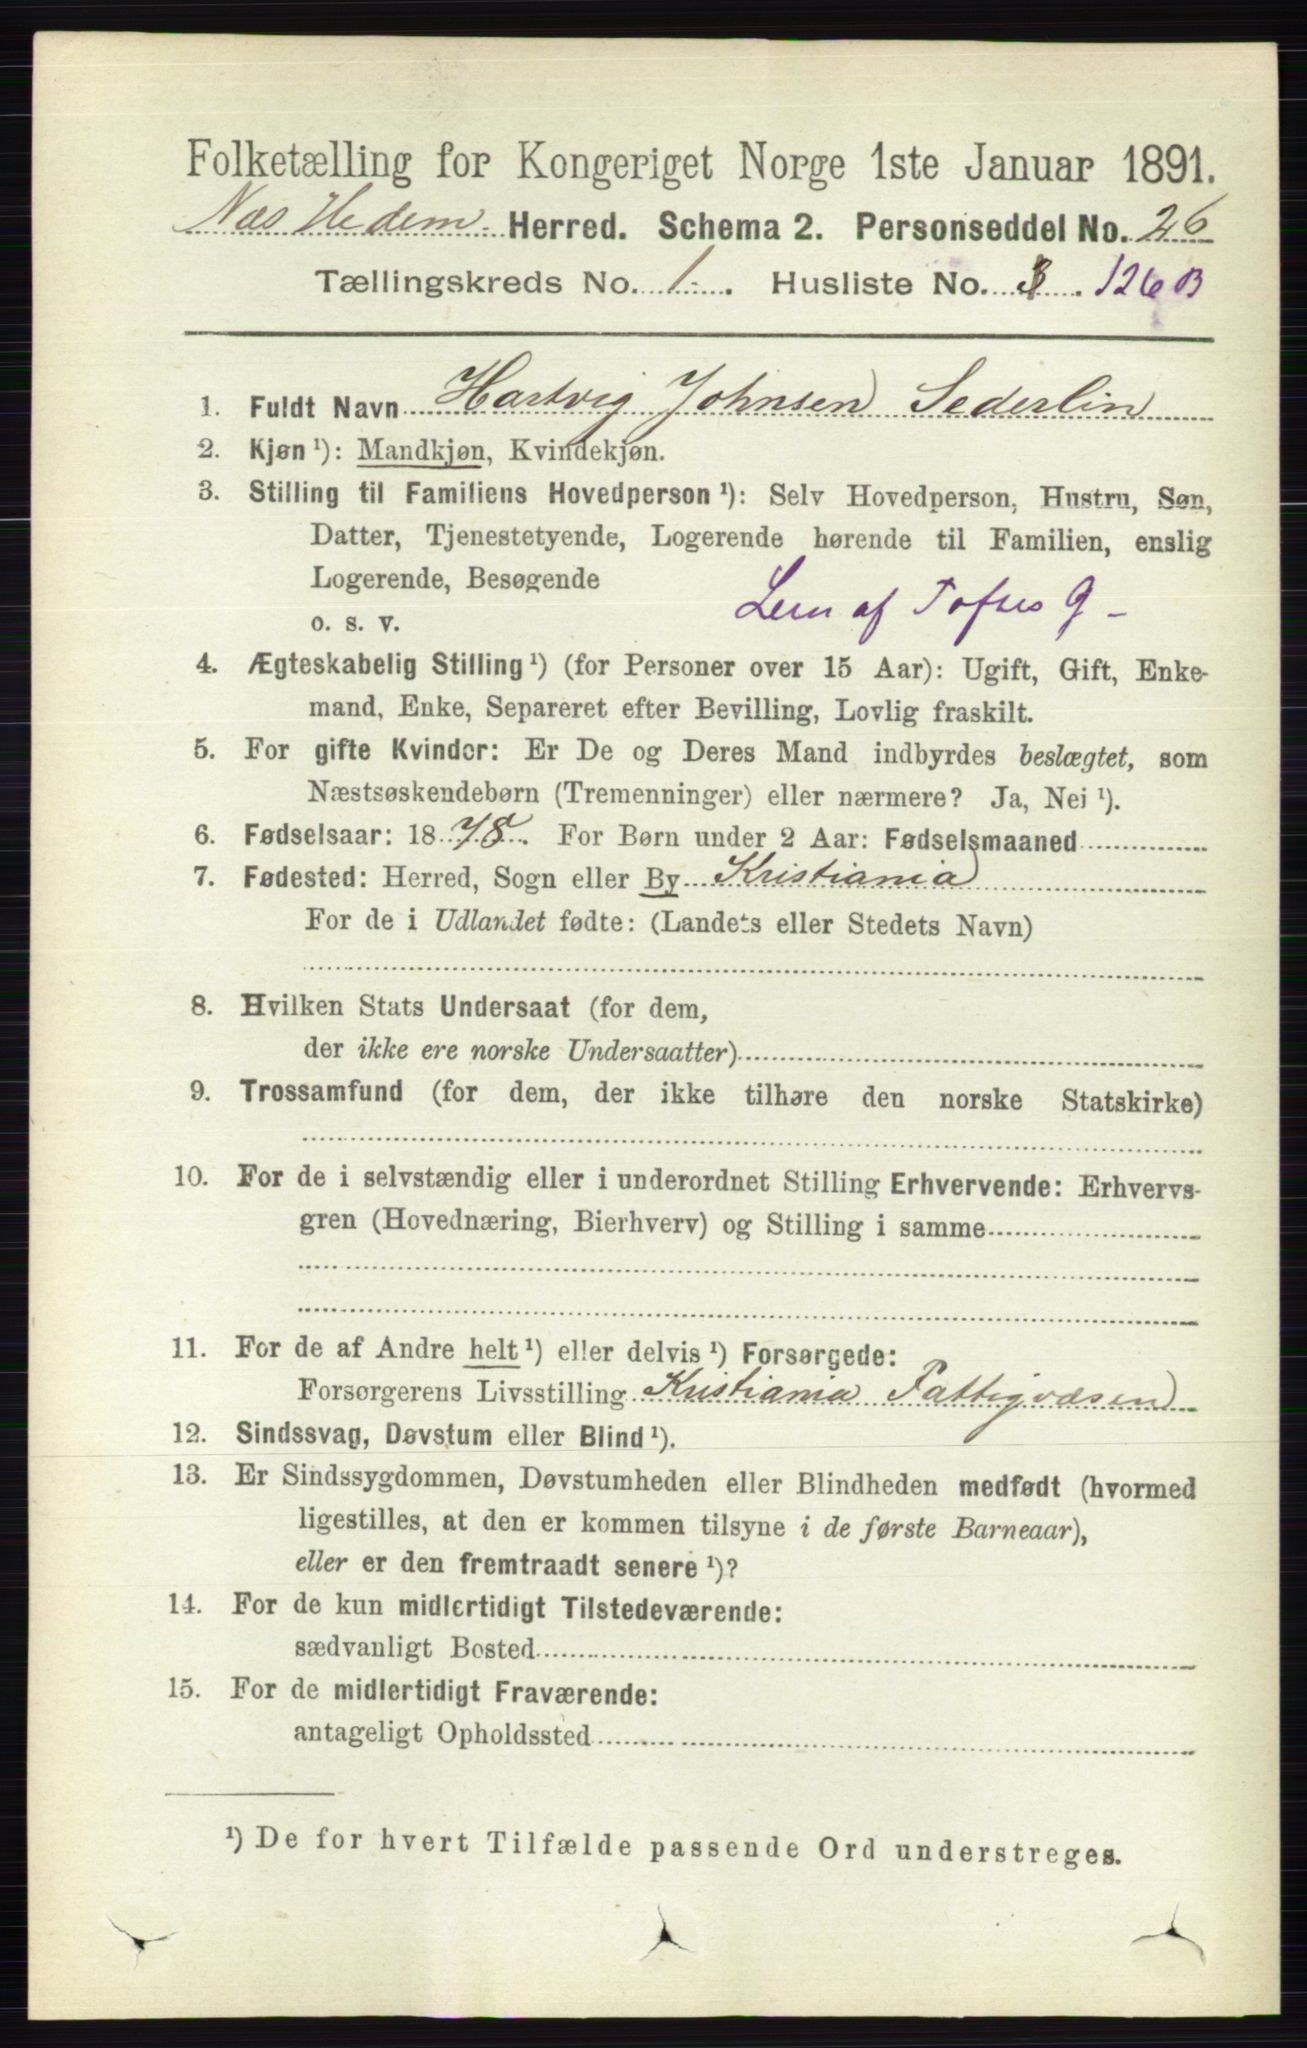 Folketælling for Kongeriget Norge 1ste Januar 1891.
Næs Hedem. Herred. Schema 2. Personseddel No. 26
Tællingskreds No. 1. Husliste No. 126 B
1. Fuldt Navn Hartvig Johnsen Sederlin
2. Kjøn ¹): Mandkjøn, Kvindekjøn.
3. Stilling til Familiens Hovedperson ¹): Selv Hovedperson, Hustru, Søn,
Datter, Tjenestetyende, Logerende hørende til Familien, enslig
Logerende, Besøgende
o. s. v. Lem af Toftes G
4. Ægteskabelig Stilling ¹) (for Personer over 15 Aar): Ugift, Gift, Enke-
mand, Enke, Separeret efter Bevilling, Lovlig fraskilt.
5. For gifte Kvinder: Er De og Deres Mand indbyrdes beslægtet, som
Næstsøskendebørn (Tremenninger) eller nærmere? Ja, Nei ¹).
6. Fødselsaar: 1878. For Børn under 2 Aar: Fødselsmaaned
7. Fødested: Herred, Sogn eller By Kristiania
For de i Udlandet fødte: (Landets eller Stedets Navn)
8. Hvilken Stats Undersaat (for dem,
der ikke ere norske Undersaatter)
9. Trossamfund (for dem, der ikke tilhøre den norske Statskirke)
10. For de i selvstændig eller i underordnet Stilling Erhvervende: Erhvervs-
gren (Hovednæring, Bierhverv) og Stilling i samme
11. For de af Andre helt ¹) eller delvis ¹) Forsørgede:
Forsørgerens Livsstilling Kristiania Fattigvæsen
12. Sindssvag, Døvstum eller Blind ¹).
13. Er Sindssygdommen, Døvstumheden eller Blindheden medfødt (hvormed
ligestilles, at den er kommen tilsyne i de første Barneaar),
eller er den fremtraadt senere ¹)?
14. For de kun midlertidigt Tilstedeværende:
sædvanligt Bosted
15. For de midlertidigt Fraværende:
antageligt Opholdssted
¹) De for hvert Tilfælde passende Ord understreges.